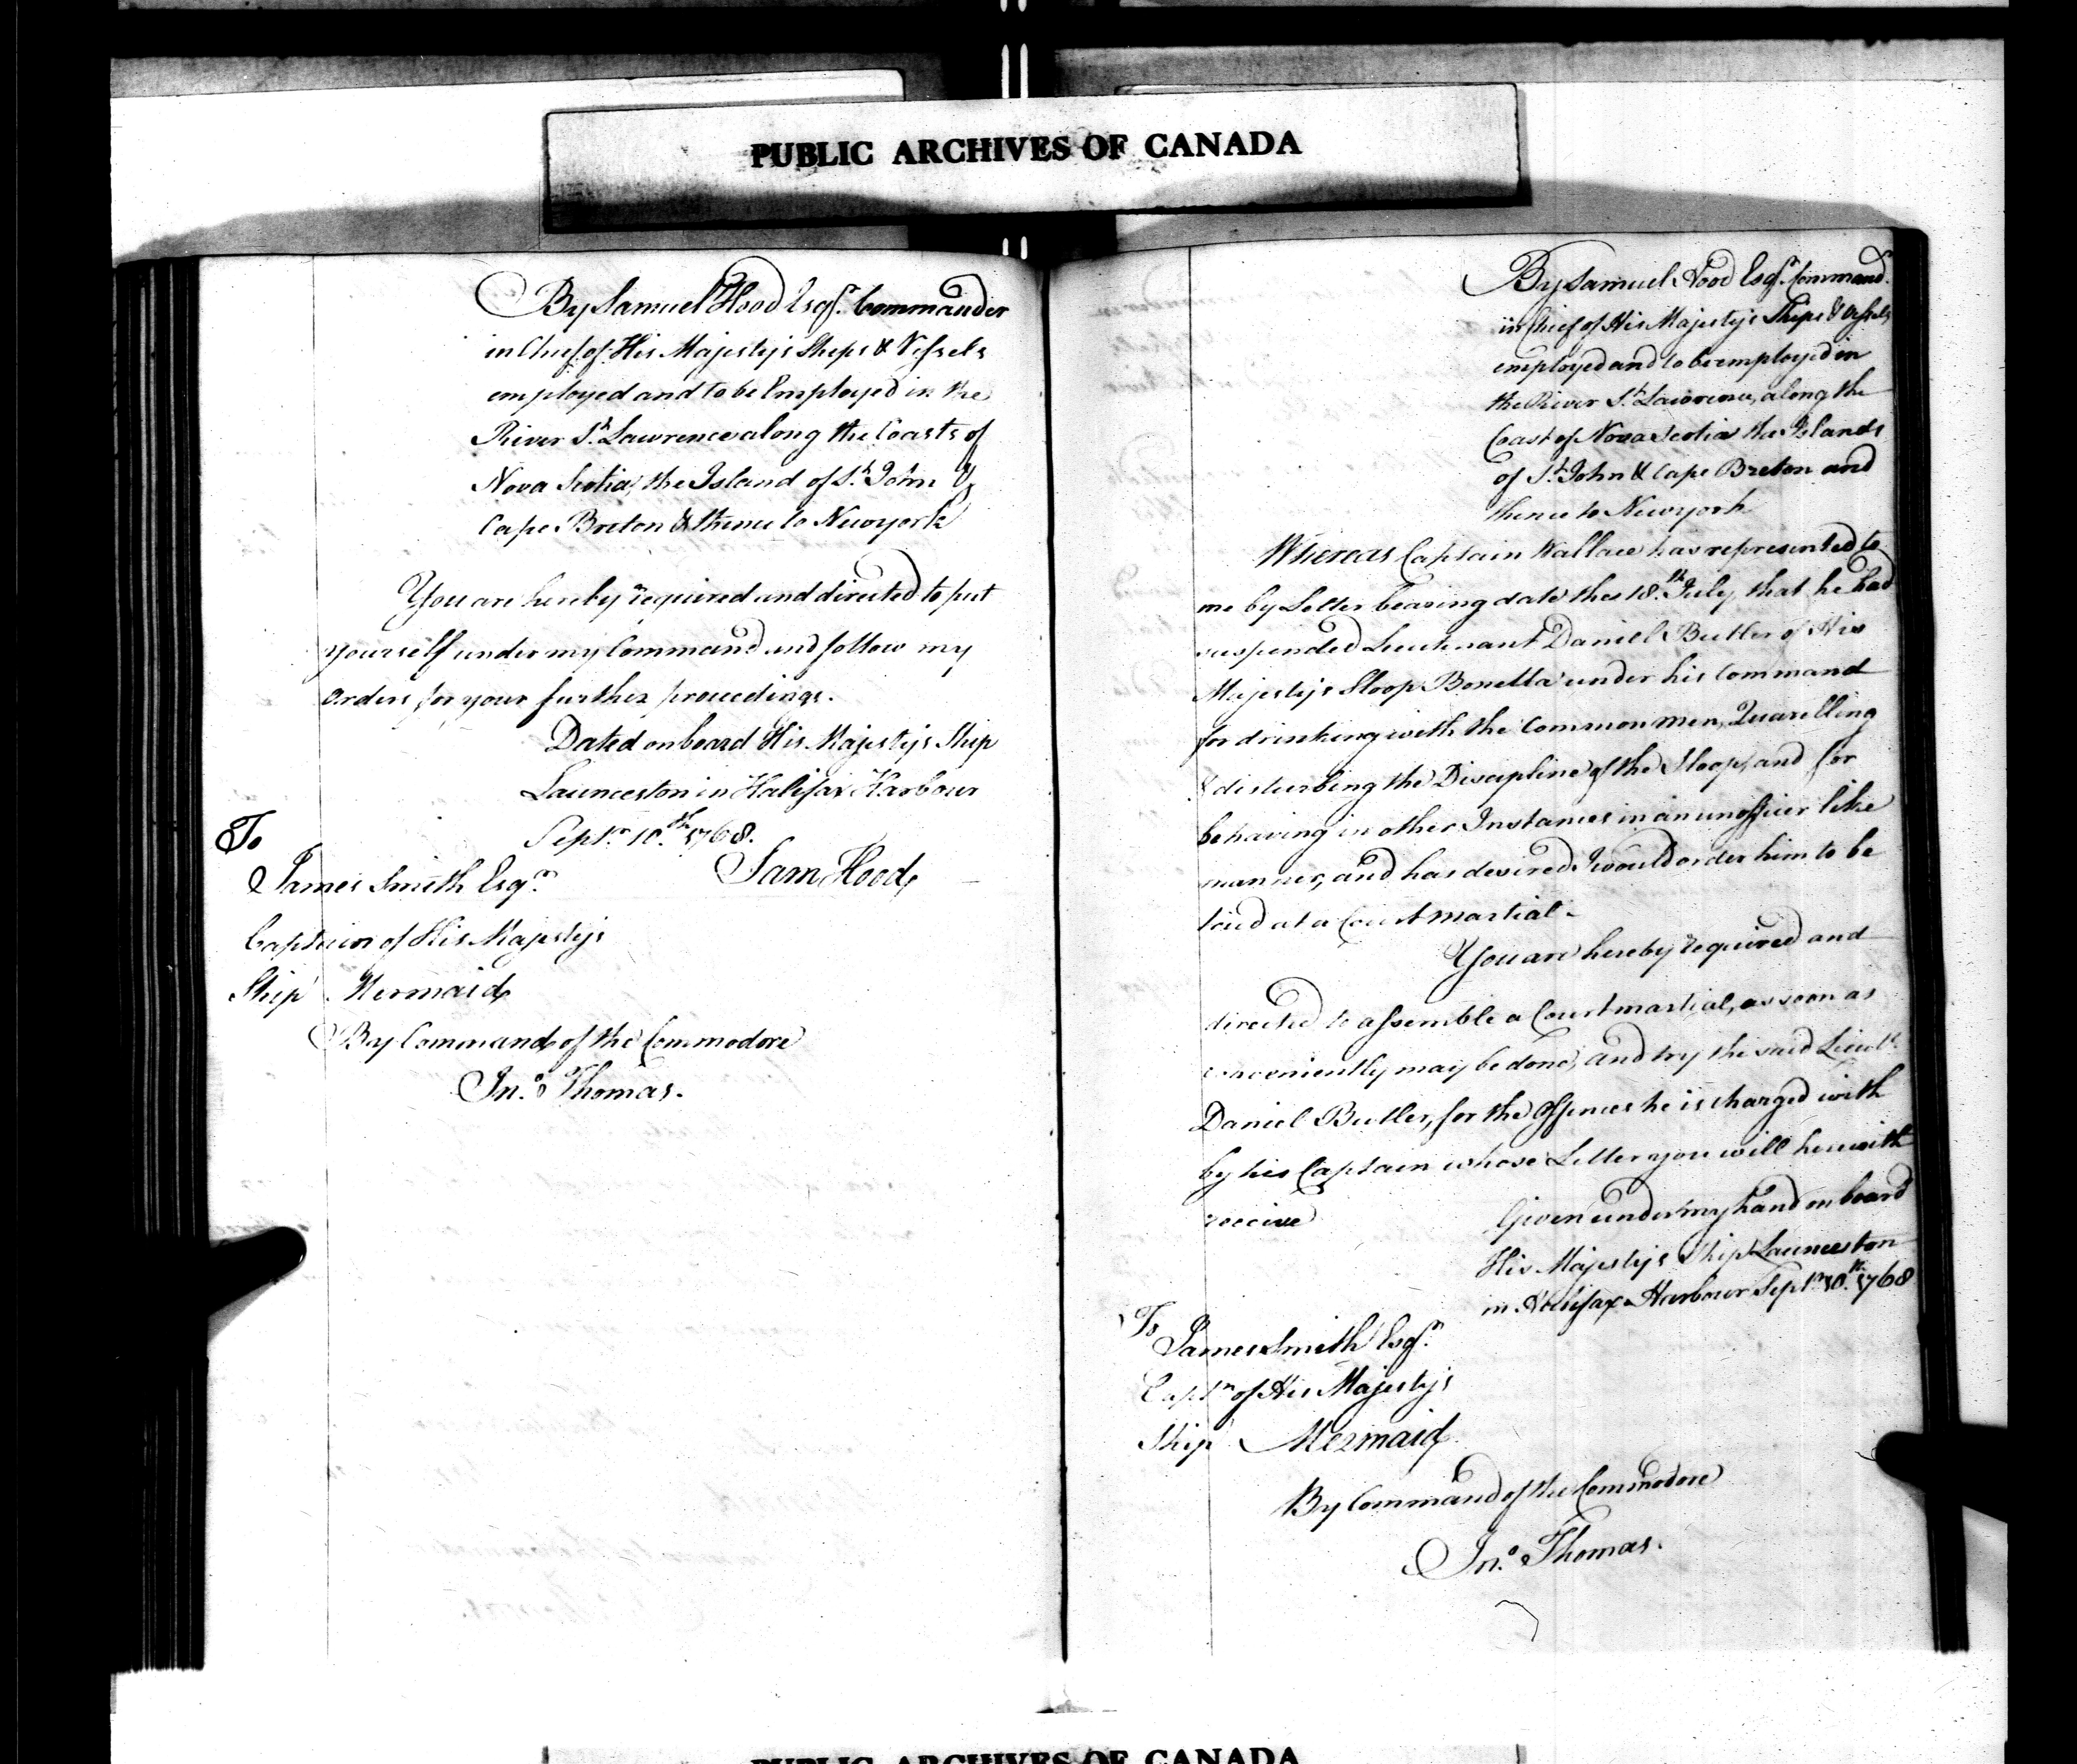 PUBLIC ARCHIVES OF CANADA
By Samuel Hood Esqr. Commander
in Chief of His Majestys Ships & Vessels
employed and to be Employed in the
River St. Lawrence along the Coasts of
Nova Scotia, the Island of St. John &
Cape Breton & thence to Newyork
You are hereby required and directed to put
yourself under my Command and follow my
Orders for your further proceedings.
Dated on board His Majestys Ship
Launceston in Halifax Harbour
Septr. 10th. 1768.
Sam Hood
To
James Smith Esqr.
Captain of His Majestys
Ship Mermaid
By Command of the Commodore
Jno. Thomas.
By Samuel Hood Esqr. Commandr.
in Chief of His Majestys Ships & Vessels
employed and to be employed in
the River St. Lawrence, along the
Coast of Nova Scotia the Islands
of St. John & Cape Breton and
thence to Newyork
Whereas Captain Wallace has represented to
me by Letter bearing date the 18th. July, that he had
suspended Lieutenant Daniel Butler of His
Majestys Sloop Bonetta under his Command
for drinking with the Common men, Quarelling
& disturbing the Discipline of the Sloop, and for
behaving in other Instances in an unofficer like
manner, and has desired I would order him to be
tried at a Court martial.
You are hereby required and
directed to assemble a Court martial, as soon as
conveniently may be done, and try the said Lieut.
Daniel Butler, for the Offences he is charged with
by his Captain whose Letter you will herewith
receive
Given under my hand on board
His Majestys Ship Launceston
in Halifax Harbour Septr. 10th. 1768
To
James Smith Esqr.
Captn of His Majestys
Ship Mermaid
By Command of the Commodore
Jno. Thomas.
PUBLIC ARCHIVES OF CANADA